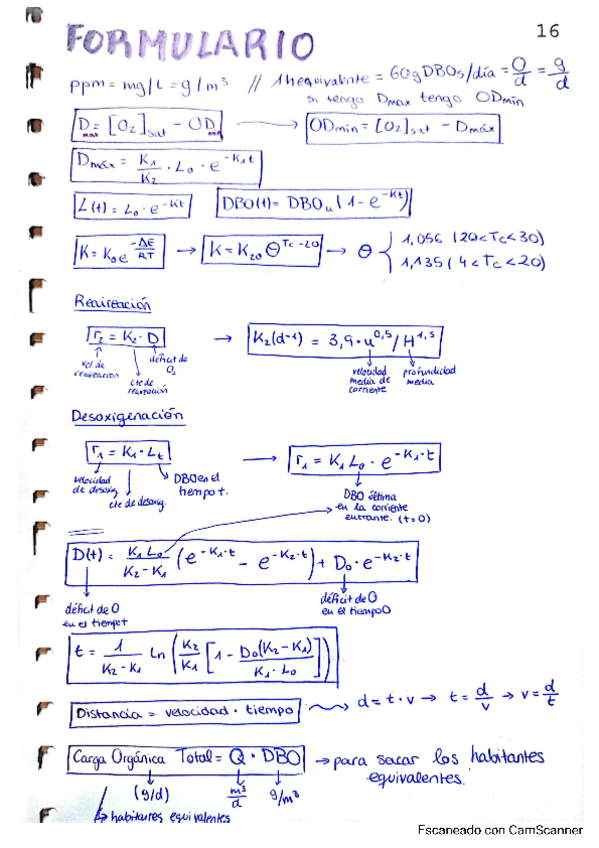 16
FORMULARIO
ppm = mg/L = g/m³ // 1 hequivalente = 60g DBO₅/día = O/d = g/d
si tengo Dmax tengo ODmin
Dmax = [O₂]sat - ODmin → ODmin = [O₂]sat - Dmáx
Dmáx = K₁/K₂ · L₀ · e^(-K₁t)
L(t) = L₀ · e^(-Kt) DBO(t) = DBOu (1 - e^(-Kt))
K = K₀ e^(-ΔE/RT) → K = K₂₀ Θ^(Tc-20) → Θ { 1,056 (20<Tc<30)
1,135 (4<Tc<20)
Reaireación
r₂ = K₂ · D → K₂(d⁻¹) = 3,9 · u^0,5 / H^1,5
vel de reaireación
cte de reaireación
déficit de O₂
velocidad media de corriente
profundidad media
Desoxigenación
r₁ = K₁ · Lt → r₁ = K₁ L₀ · e^(-K₁·t)
velocidad de desoxig.
cte de desoxig.
DBO en el tiempo t.
DBO última
en la corriente
entrante. (t=0)
D(t) = K₁L₀/(K₂-K₁) (e^(-K₁·t) - e^(-K₂·t)) + D₀ · e^(-K₂·t)
déficit de O
en el tiempo t
déficit de O
en el tiempo 0
t = 1/(K₂-K₁) Ln (K₂/K₁ [1 - D₀(K₂-K₁)/(K₁·L₀)])
Distancia = velocidad · tiempo d = t · v → t = d/v → v = d/t
Carga Orgánica Total = Q · DBO → para sacar los habitantes
equivalentes.
(g/d) m³/d g/m³
habitantes equivalentes
Escaneado con CamScanner